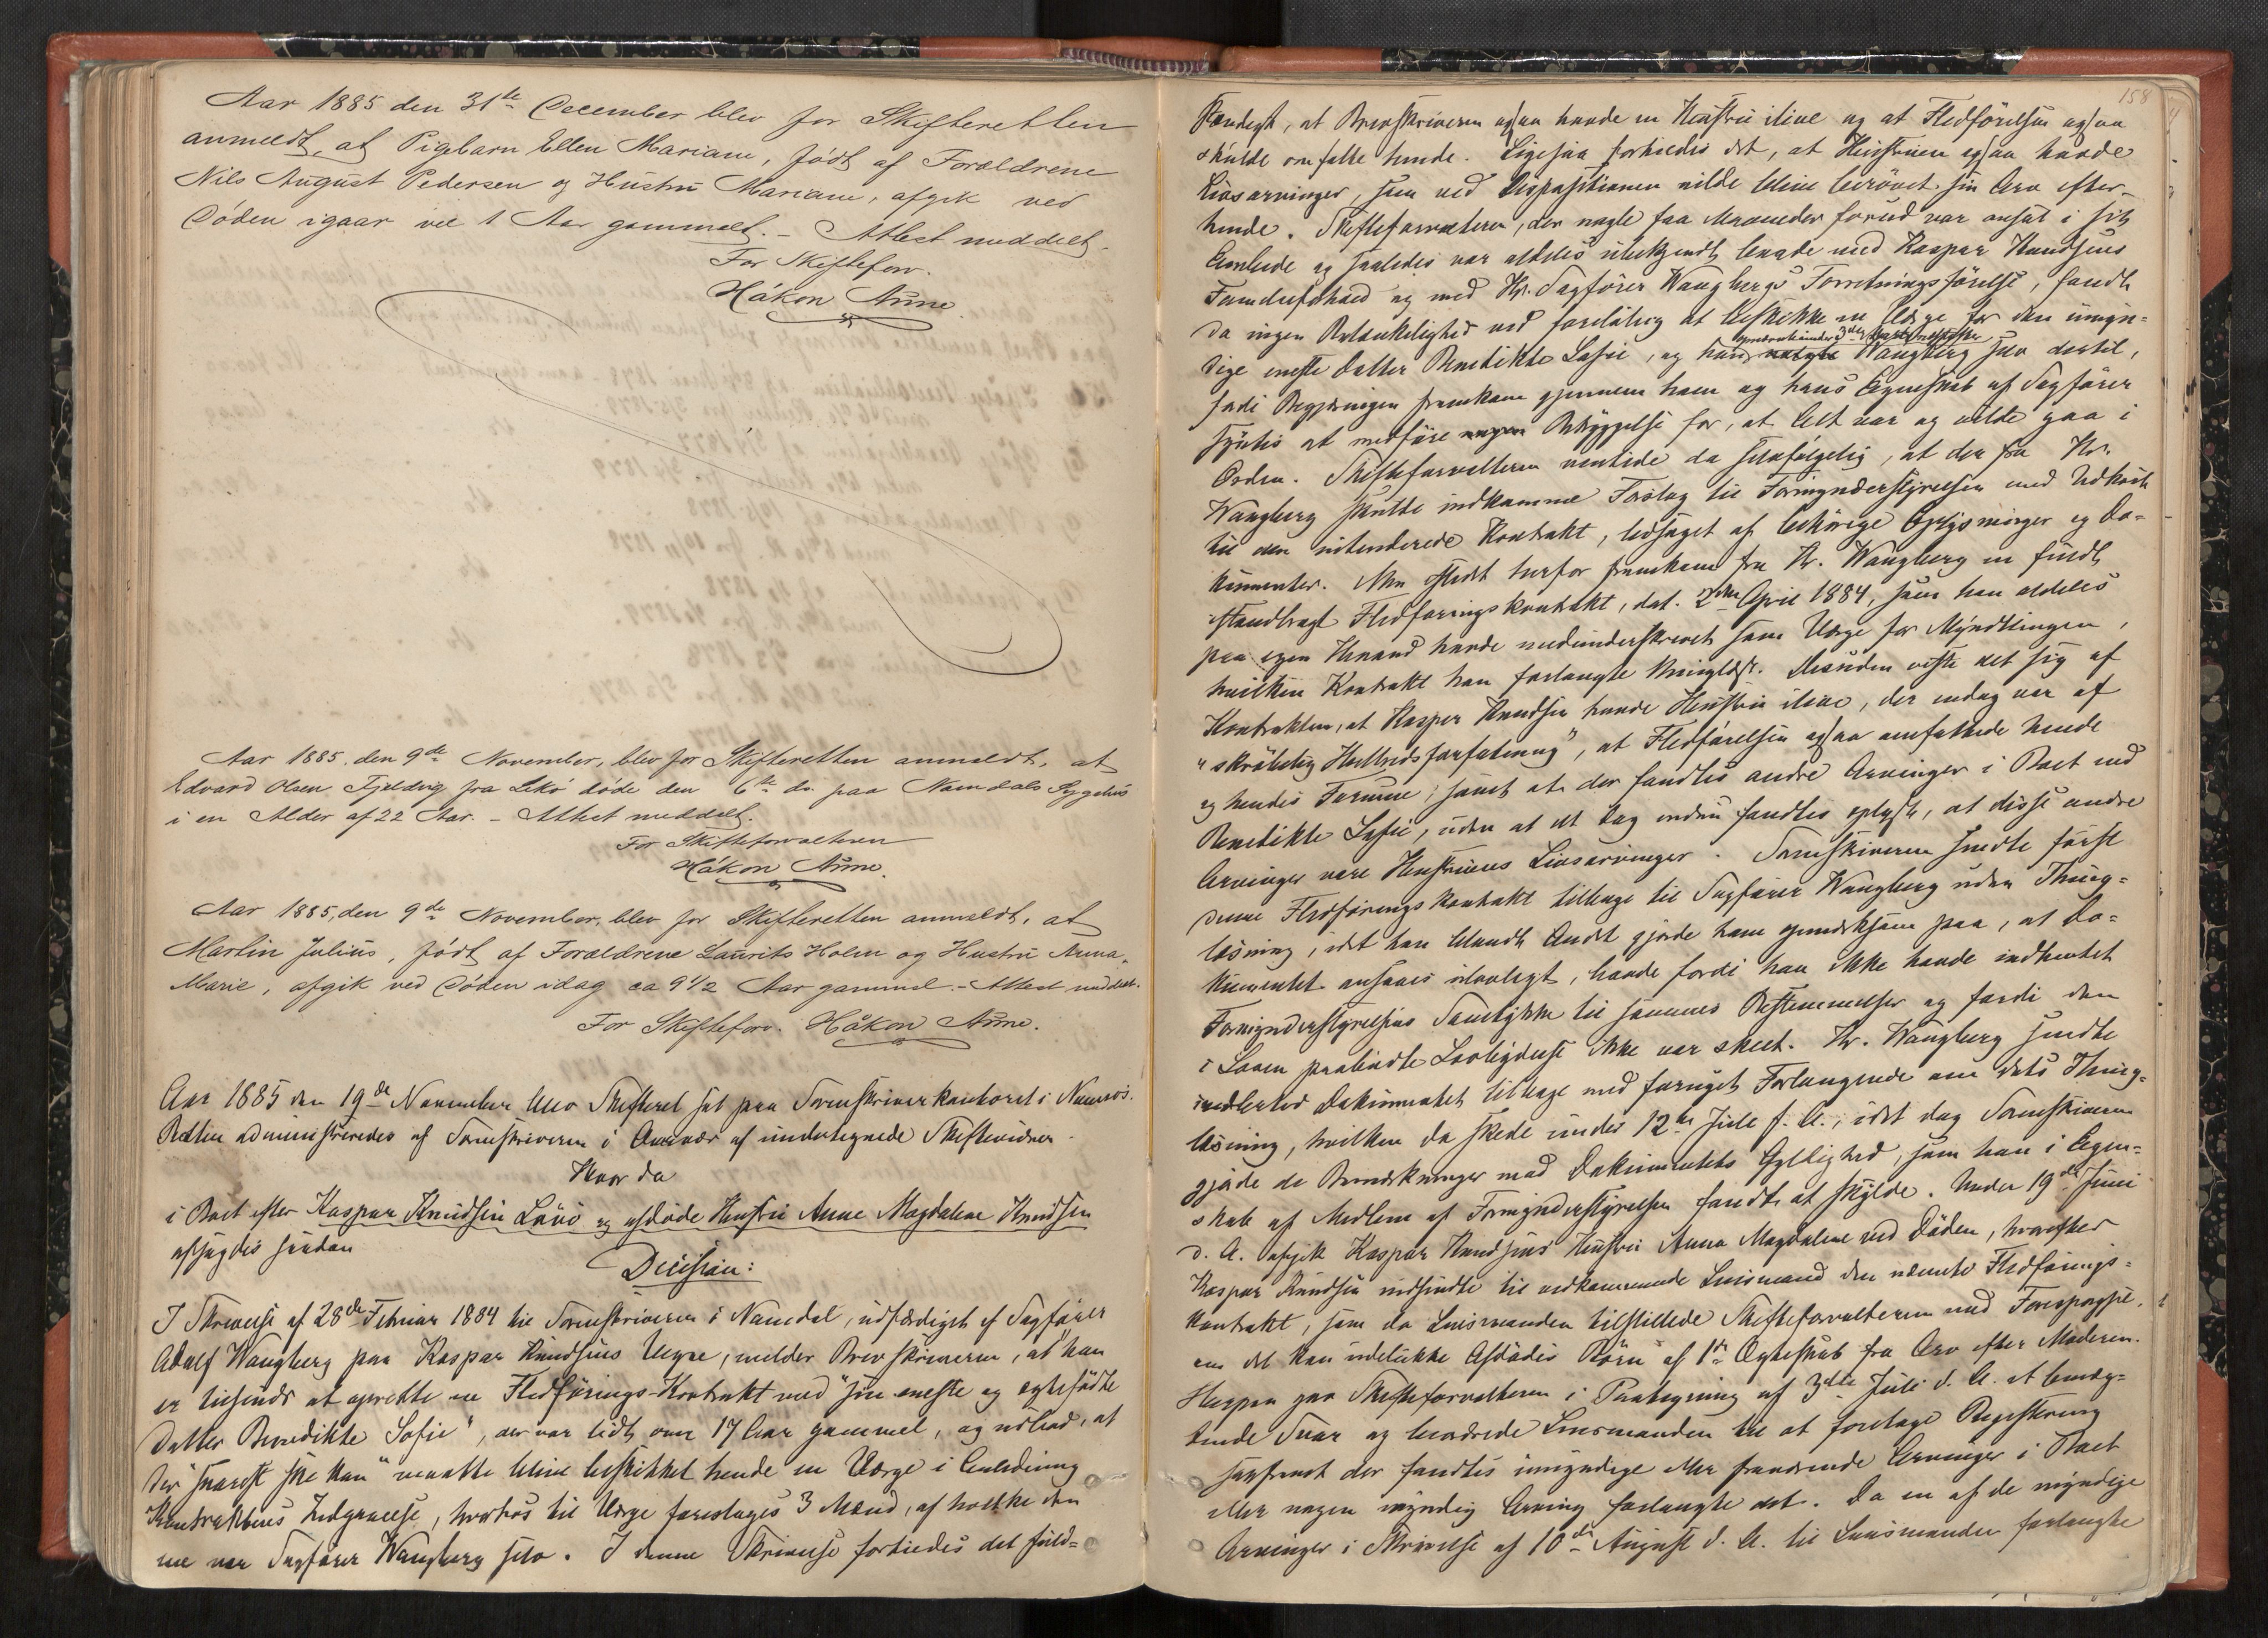 Aar 1885 den 31te December blev for Skifteretten
anmeldt, at Pigebarn Ellen Mariane, født af Forældrene
Nils August Pedersen og Hustru Mariane, afgik ved
Døden igaar vel 1 Aar gammelt. - Attest meddelt.
For Skifteforv.
Håkon Aune.
Aar 1885, den 9de November, blev for Skifteretten anmeldt, at
Edvard Olsen Fjeldvig fra Lekø døde den 6te ds. paa Namdals Sygehus
i en Alder af 22 Aar. - Attest meddelt.
For Skifteforvalteren
Håkon Aune.
Aar 1885, den 9de November, blev for Skifteretten anmeldt, at
Martin Julius, født af Forældrene Laurits Holm og Hustru Anna
Marie, afgik ved Døden idag ca 9 1/2 Aar gammel. - Attest meddelt.
For Skifteforv. Håkon Aune.
Aar 1885 den 19de November blev Skifteret sat paa Sorenskriverkontoret i Namsos.
Retten administreredes af Sorenskriveren i Overvær af undertegnede Skiftevidner.
Hvor da
i Boet efter Kaspar Knudsen Løvø og afdøde Hustru Anne Magdalene Knudsen
afsagdes saadan
Decision:
I Skrivelse af 28de Februar 1884 til Sorenskriveren i Namdal, udfærdiget af Sagfører
Adolf Wangberg paa Kaspar Knudsens Vegne, melder Brevskriveren, at han
er tilsinds at oprette en Fledførings-Kontrakt med "sin eneste og ægtefødte
Datter Benedikte Sofie", der var lidt over 17 Aar gammel, og udbad, at
der "snarest ske kan" maatte blive beskikket hende en Værge i Anledning
Kontraktens Indgaaelse, hvorhos til Værge foresloges 3 Mænd, af hvilke den
ene var Sagfører Wangberg selv. I denne Skrivelse fortiedes det fuld-
158
stændigt, at Brevskriveren ogsaa havde en Hustru ilive og at Fledførelsen ogsaa
skulde omfatte hende. Ligesaa fortiedes det, at Hustruen ogsaa havde
Livsarvinger, som ved Dispositionen vilde blive berøvet sin Arv efter
hende. Skifteforvalteren, der nogle faa Maaneder forud var ansat i sit
Embede og saaledes var aldeles ubekjendt baade med Kaspar Knudsens
Familieforhold og med Hr. Sagfører Wangbergs Forretningsførelse, fandt
da ingen Betænkelighed ved foreløbig at beskikke en Værge for den umyn-
dige eneste Datter Benedikte Sofie, og han valgte Wangberg selv dertil,
fordi Begjæringen fremkom gjennem ham og hans Egenskab af Sagfører
syntes at medføre nogen Betryggelse for, at Alt var og vilde gaa i
Orden. Skifteforvalteren ventede da selvfølgelig, at der fra Hr.
Wangberg skulde indkomme Forslag til Formynderstyrelsen med Udkast
til den intenderede Kontrakt, ledsaget af behørige Oplysninger og Do-
kumenter. Men istedet herfor fremkom fra Hr. Wangberg en fuldt
istandbragt Fledføringskontrakt, dat. 2den April 1884, som han aldeles
paa egen Haand havde medunderskrevet som Værge for Myndlingen,
hvilken Kontrakt han forlangte thinglæst. Desuden viste det sig af
Kontrakten, at Kaspar Knudsen havde Hustru ilive, der endog var af
"skrøbelig Helbredsforfatning", at Fledførelsen ogsaa omfattede hende
og hendes Formue, samt at der fandtes andre Arvinger i Boet end
Benedikte Sofie, uden at det dog endnu fandtes oplyst, at disse andre
Arvinger vare Hustruens Livsarvinger. Sorenskriveren sendte først
denne Fledføringskontrakt tilbage til Sagfører Wangberg uden Thing-
læsning, idet han blandt Andet gjorde ham opmærksom paa, at Do-
kumentet ansaaes ulovligt, baade fordi han ikke havde indhentet
Formynderstyrelsens Samtykke til sammes Bestemmelser og fordi den
i Loven paabudte Lovligdelse ikke var skeet. Hr. Wangberg sendte
imidlertid Dokumentet tilbage med fornyet Forlangende om dets Thing-
læsning, hvilken da skede under 12te Juli s. A.; idet dog Sorenskriveren
gjorde de Bemærkninger mod Dokumentets Gyldighed, som han i Egen-
skab af Medlem af Formynderstyrelsen fandt at skylde. Under 19de Juni
d. A. afgik Kaspar Knudsens Hustru Anna Magdalene ved Døden, hvorefter
Kaspar Knudsen indsendte til vedkommende Lensmand den nævnte Fledførings-
kontrakt, som da Lensmanden tilstillede Skifteforvalteren med Forespørgsel,
om det kan udelukke Afdødes Børn af 1ste Ægteskab fra Arv efter Moderen.
Herpaa gav Skifteforvalteren i Paategning af 3die Juli d. A. et benæg-
tende Svar og beordrede Lensmanden til at foretage Registrering
saafremt der fandtes umyndige eller fraværende Arvinger i Boet
eller nogen myndig Arving forlangte det. Da en af de myndige
Arvinger i Skrivelse af 10de August d. A. til Lensmanden forlangte